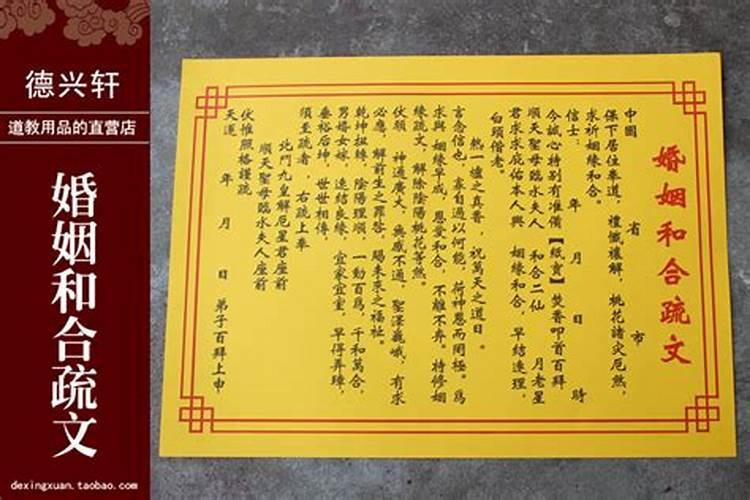 德兴轩
道教用品的直营店
婚姻和合疏文
dexingxuan.taobao.com
婚姻和合疏文
中國 省 市
保下居住奉道，禮懺禳解，桃花諸灾厄煞，
求祈姻緣和合。
信士： 年 月 日 時
今誠心特别有准備【紙寳】焚香叩首百拜
順天聖母臨水夫人 和合二仙 月老星
君求求庇佑本人與 姻緣和合，早結連理，
白頭偕老。
熱一爐之真香，祝萬天之道日。
言念信也，寡自過以何能，荷神恩而罔極。爲
求與 姻緣早成，恩愛和合，不離不弃。特修姻
緣疏文，解除陰陽桃花等煞。
伏願 神通廣大，無感不通，聖澤巍峨，有求
必應，解前生之罪咎，賜未來之福祉。
乾坤扭轉，陰陽理順，一動百爲，千和萬合，
男婚女嫁，速結良緣，宜家宜室，早得弄璋，
垂裕后坤，世世相傳，
須至疏者，右疏上奉
北門九皇解厄星君座前
順天聖母臨水夫人座前
伏惟照格謹疏
天運 年 月 日 弟子百拜上申